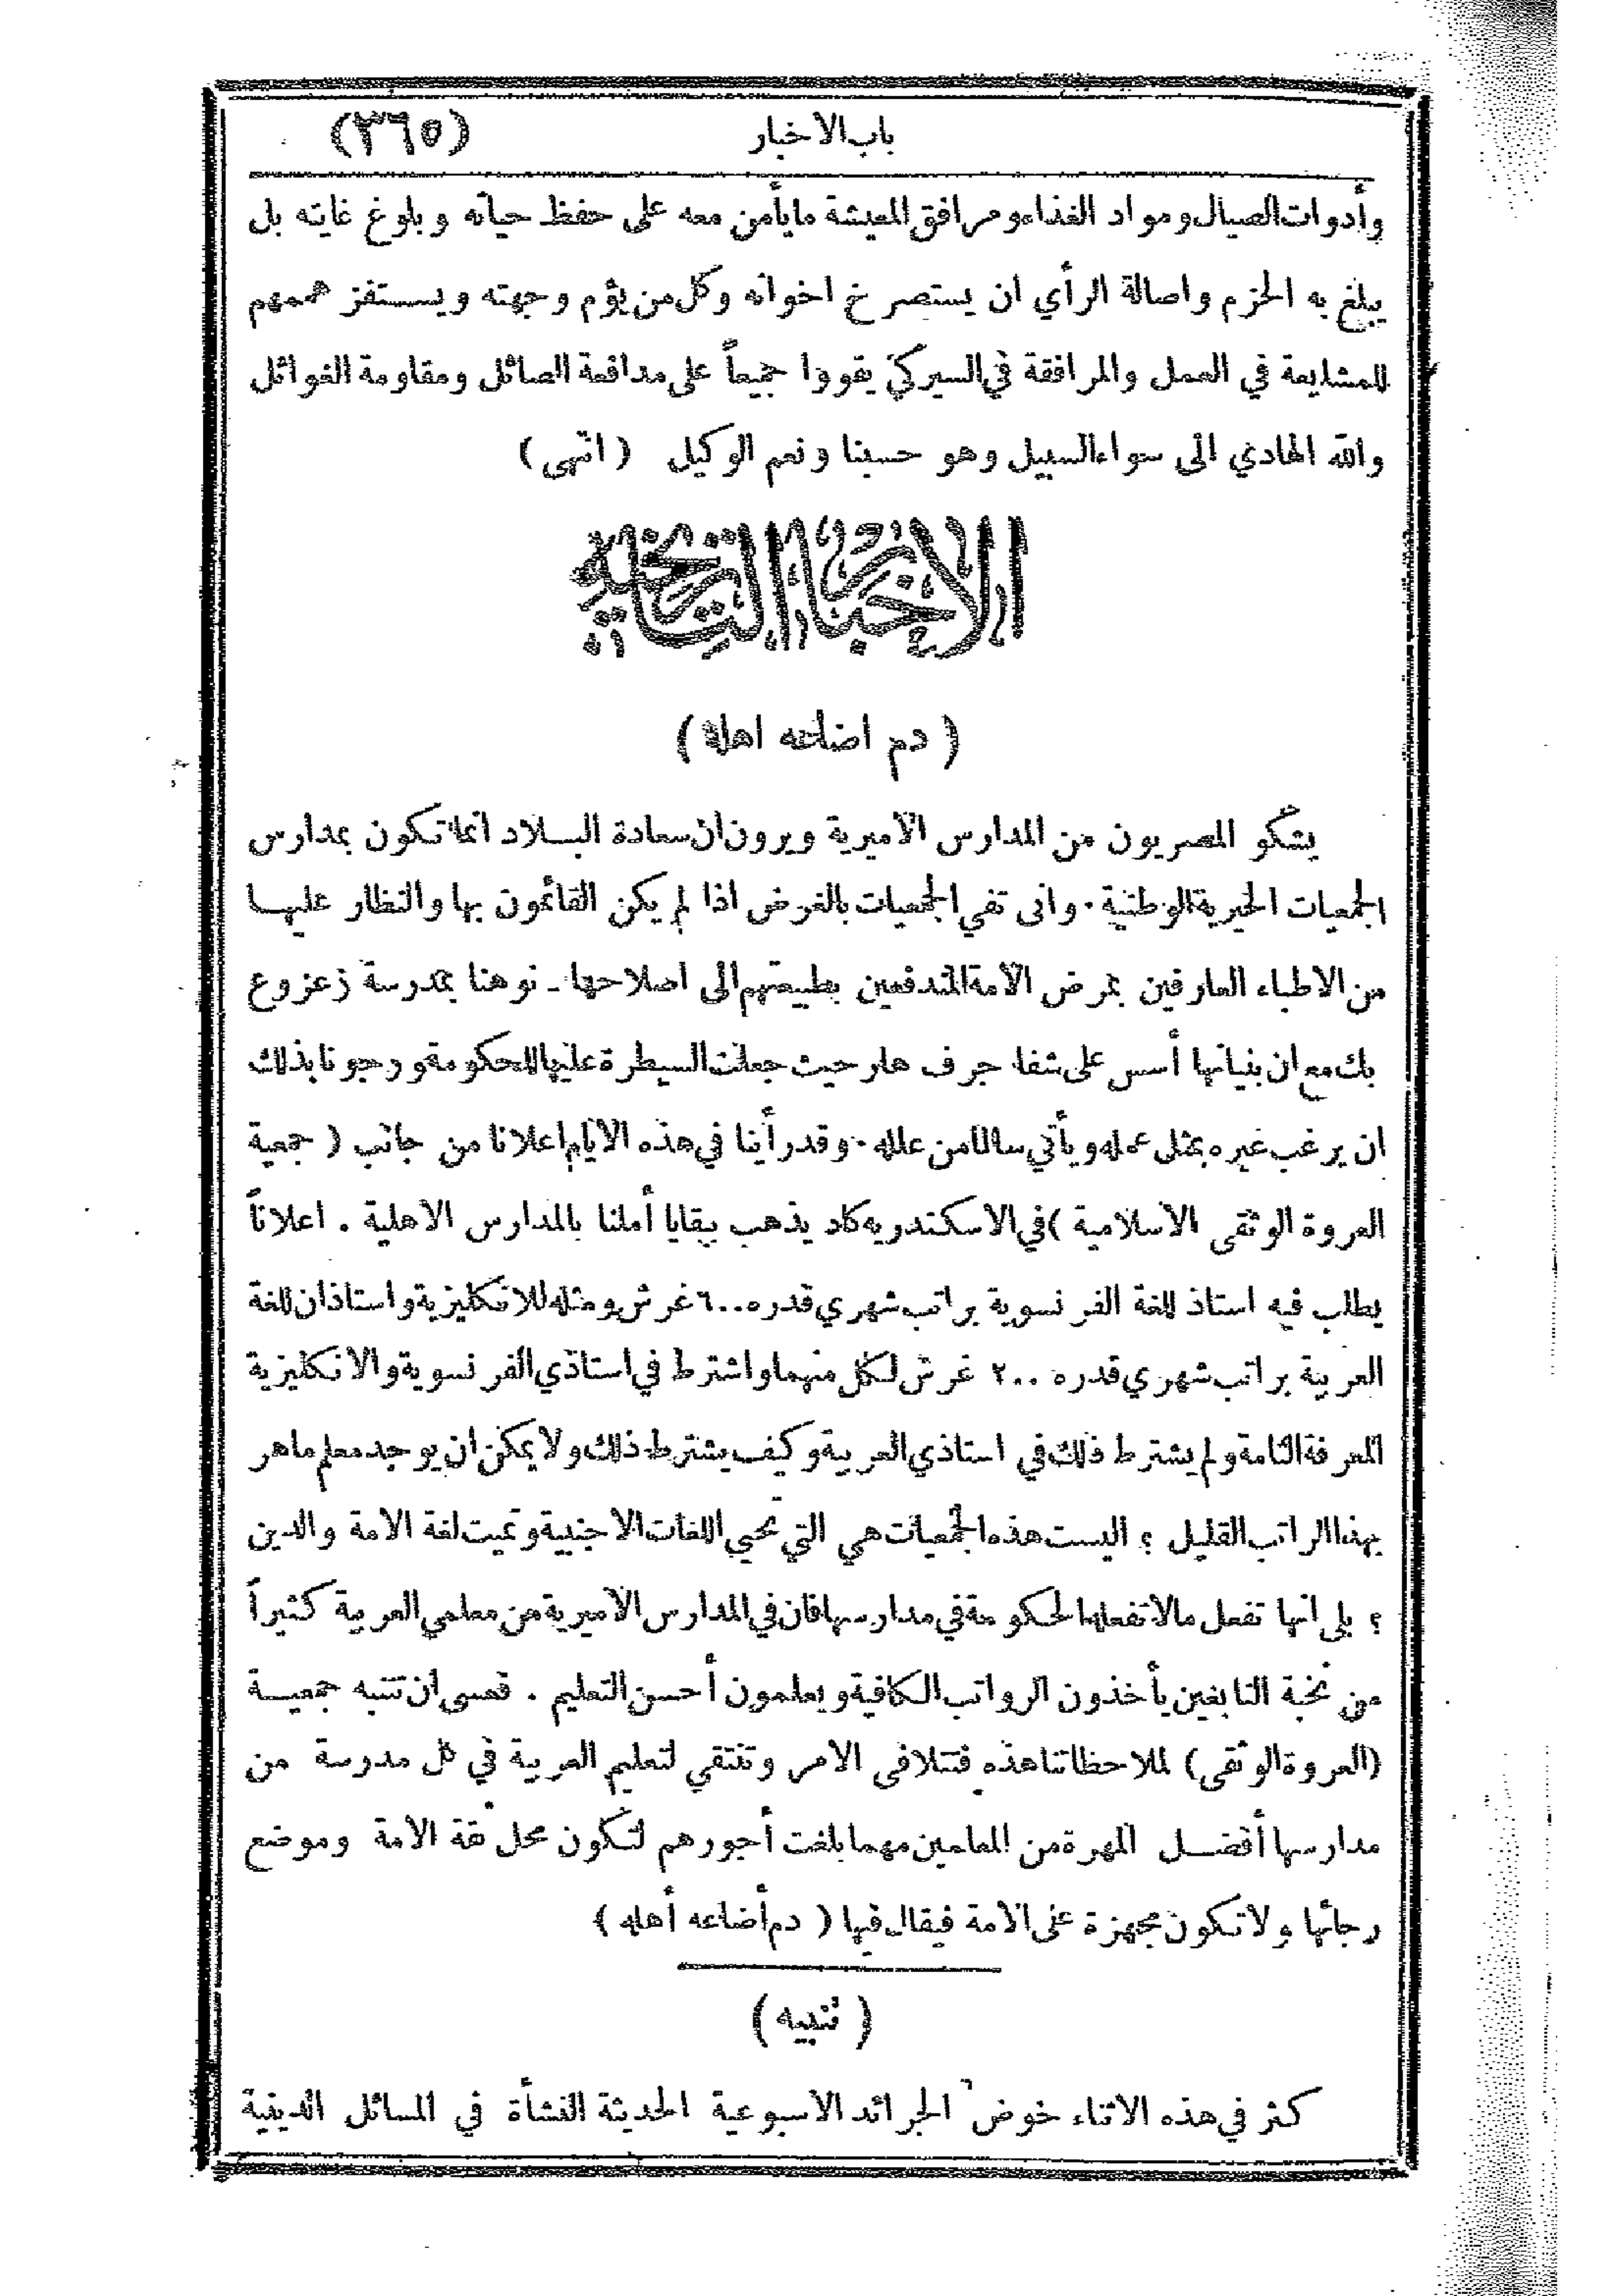 باب الاخبار (٣٦٥)
وأدوات الصيال ومواد الغذاء ومرافق المعيشة ما يأمن معه على حفظ حياته وبلوغ غايته بل
يبلغ به الحزم واصالة الرأي ان يستصرخ اخوانه وكل من يؤم وجهته ويستفز هممهم
للمشايعة في العمل والمرافقة في السير كي يقووا جميعاً على مدافعة الصائل ومقاومة الغوائل
والله الهادي الى سواء السبيل وهو حسبنا ونعم الوكيل ( انتهى )
الاخبار التاريخية
( دم اضاعه اهله )
يشكو المصريون من المدارس الاميرية ويرون ان سعادة البلاد انما تكون بمدارس
الجمعيات الخيرية الوطنية . وانى تفي الجمعيات بالغرض اذا لم يكن القائمون بها والنظار عليها
من الاطباء العارفين بمرض الامة المندفعين بطبيعتهم الى اصلاحها ـ نوهنا بمدرسة زعزوع
بك مع ان بنيانها أسس على شفا جرف هار حيث جعلت السيطرة عليها للحكومة ورجونا بذلك
ان يرغب غيره بمثل عمله ويأتي سالما من علله . وقد رأينا في هذه الايام اعلانا من جانب ( جمعية
العروة الوثقى الاسلامية ) في الاسكندريه كاد يذهب ببقايا أملنا بالمدارس الاهلية . اعلاناً
يطلب فيه استاذ للغة الفرنسوية براتب شهري قدره ٦٠٠ غرش ومثله للانكليزية واستاذان للغة
العربية براتب شهري قدره ٢٠٠ غرش لكل منهما واشترط في استاذي الفرنسوية والانكليزية
المعرفة التامة ولم يشترط ذلك في استاذي العربية وكيف يشترط ذلك ولا يمكن ان يوجد معلم ماهر
بهذا الراتب القليل ؟ اليست هذه الجمعيات هي التي تحيي اللغات الاجنبية وتميت لغة الامة والدين
؟ بلى انها تفعل مالا تفعله الحكومة في مدارسها فان في المدارس الاميرية من معلمي العربية كثيراً
من نخبة النابغين يأخذون الرواتب الكافية ويعلمون أحسن التعليم . فعسى ان تتنبه جمعيـة
(العروة الوثقى) لملاحظاتنا هذه فتتلافى الامر وتنتقي لتعليم العربية في كل مدرسة من
مدارسها أفضـل المهرة من المعلمين مهما بلغت أجورهم لتكون محل ثقة الامة وموضع
رجائها ولا تكون مجهزة على الامة فيقال فيها ( دم أضاعه أهله )
( تنبيه )
كثر في هذه الاثناء خوض الجرائد الاسبوعية الحديثة النشأة في المسائل الدينية